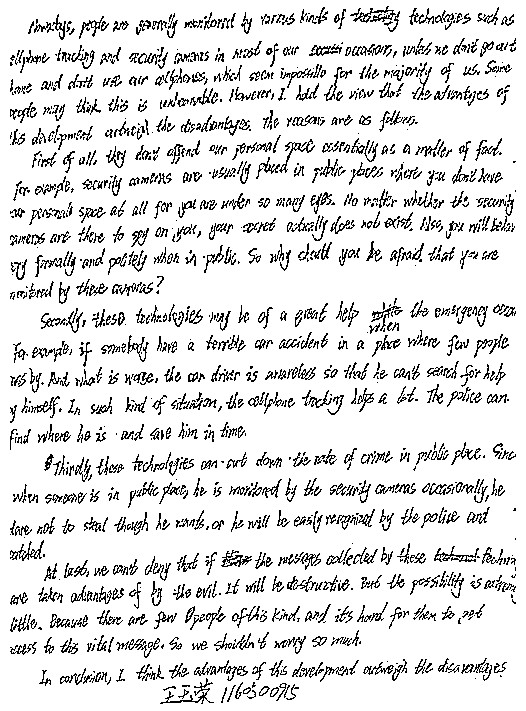 Nowadays, people are generally monitored by various kinds of technologies such as
cellphone tracking and security cameras in most of our occasions, unless we don't go out
home and don't use our cellphones, which seem impossible for the majority of us. Some
people may think this is unbearable. However, I hold the view that the advantages of
this development outweigh the disadvantages. The reasons are as follows.
First of all, they don't offend our personal space essentially as a matter of fact.
For example, security cameras are usually placed in public places where you don't have
our personal space at all for you are under so many eyes. No matter whether the security
cameras are there to spy on you, your secret actually does not exist. Also, you will behav
very formally and politely when in public. So why should you be afraid that you are
monitored by these cameras?
Secondly, these technologies may be of a great help when the emergency occur
For example, if somebody have a terrible car accident in a place where few people
pass by. And what is worse, the car driver is awareless so that he can't search for help
by himself. In such kind of situation, the cellphone tracking helps a lot. The police can
find where he is and save him in time.
Thirdly, these technologies can cut down the rate of crime in public place. Sinc
when someone is in public place, he is monitored by the security cameras occasionally, he
dare not to steal though he wants, or he will be easily recognized by the police and
catched.
At last, we can't deny that if the messages collected by these techni
are taken advantages of by the evil. It will be destructive. But the possibility is extrem
little. Because there are few people of this kind. and it's hard for them to get
access to this vital message. So we shouldn't worry so much.
In conclusion, I think the advantages of this development outweigh the disadvantages
王玉荣 1160300915